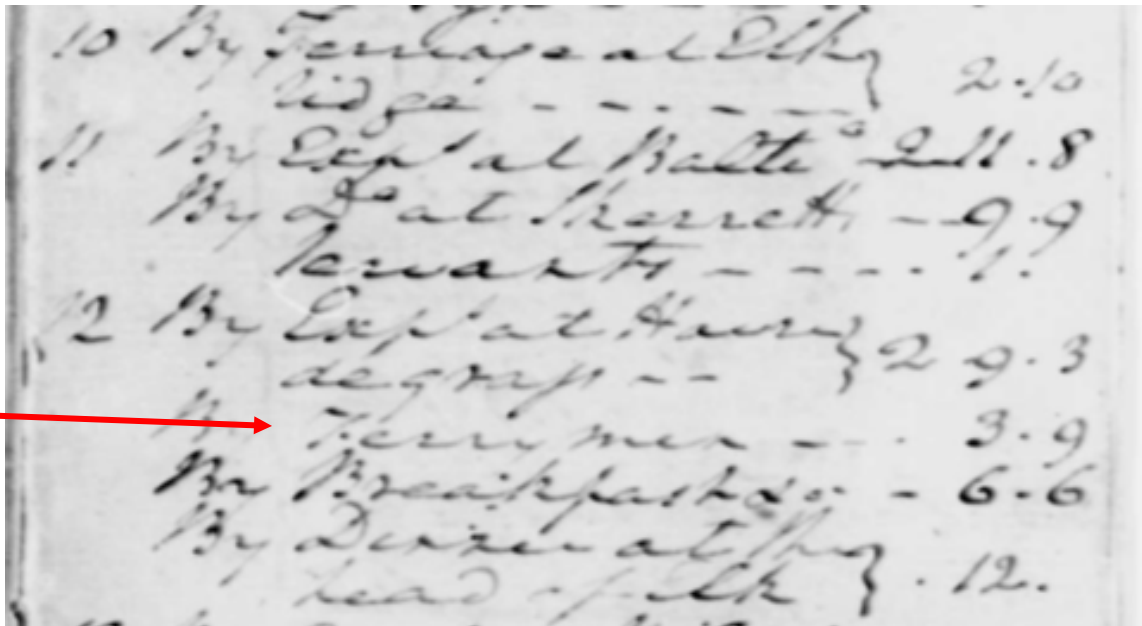 10 By Ferriage at Elk
ridge - - - - - } 2.10
11 By Exps at Balto 2 11.8
By Do at Skerretts -- 9.9
Servants - - - - .
12 By Exps at Havre
degrass -- } 2 9.3
By Ferrymen - - - . 3.9
By Breakfast &c. - 6.6
By Dinner at the
head of elk } . 12.